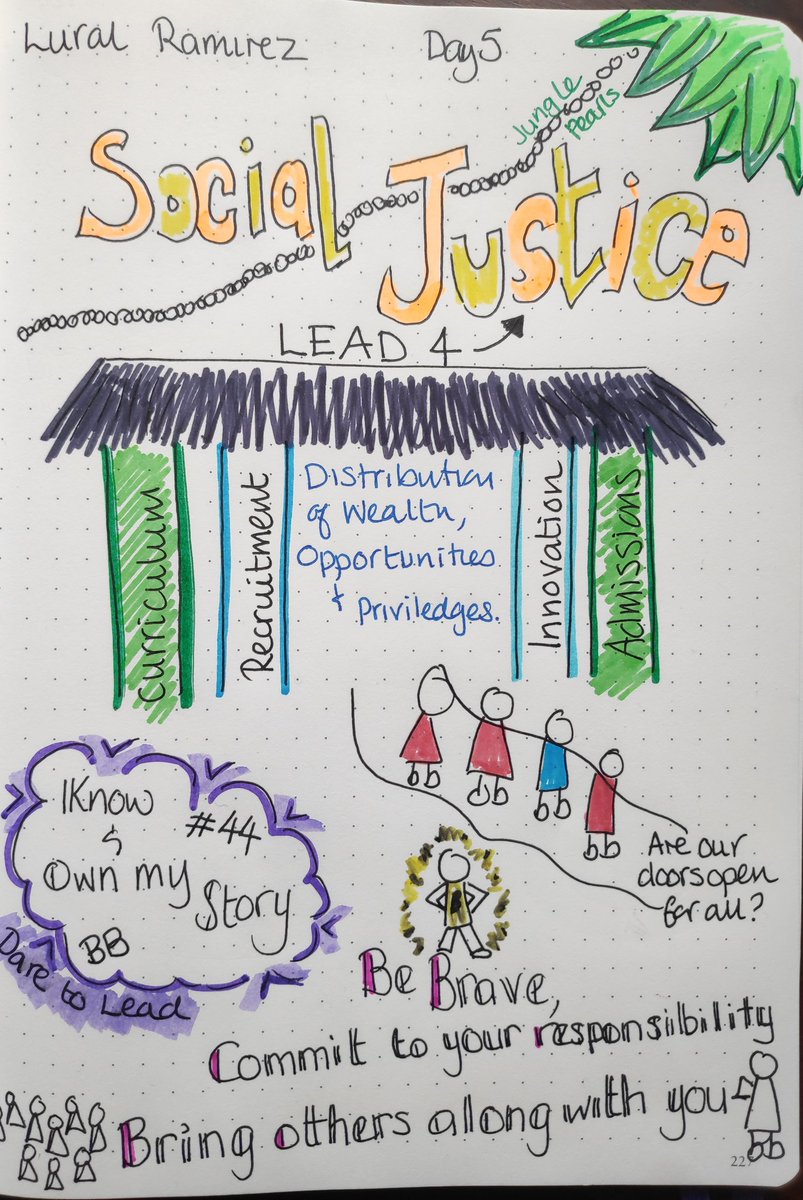 Lural Ramirez
Day 5
Jungle
Pearls
Social Justice
LEAD 4
Curriculum
Recruitment
Distribution
of Wealth,
Opportunities
+ Priviledges.
Innovation
Admissions
I Know
&
#44
Own my
Story
BB
Dare to Lead
Are our
doors open
for all?
Be Brave,
Commit to your responsilbility
Bring others along with you
22